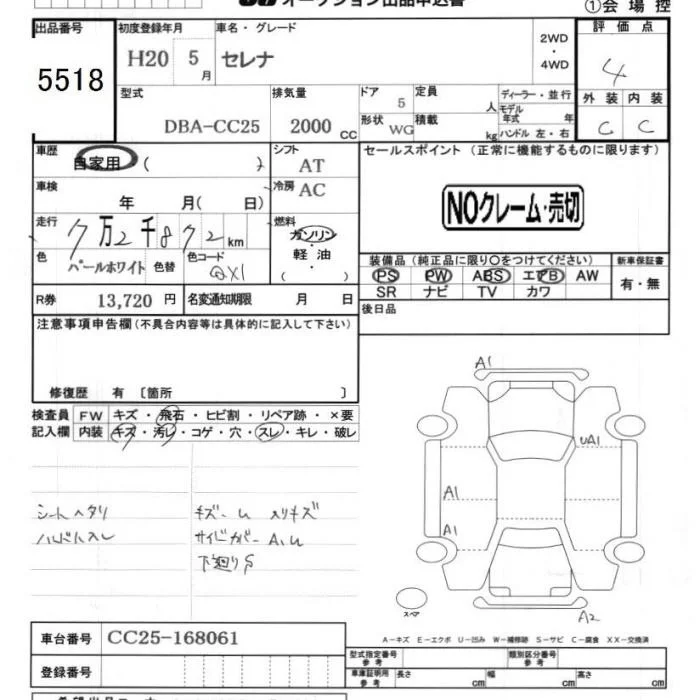 オークション出品申込書
①会場控
出品番号
5518
初度登録年月
H20 5月
車名・グレード
セレナ
2WD
・
4WD
評価点
4
型式
DBA-CC25
排気量
2000 CC
ドア
5
形状
WG
定員
人
積載
kg
ディーラー・並行
モデル年式 年
ハンドル 左・右
外装 内装
C C
車歴
自家用 ( )
シフト
AT
車検
年 月( 日)
冷房
AC
走行
7万2千872km
燃料
ガソリン
軽油
( )
色
パールホワイト
色替
色コード
QX1
R券 13,720 円
名変通知期限 月 日
セールスポイント (正常に機能するものに限ります)
NOクレーム・売切
装備品 (純正品に限り○をつけてください)
新車保証書
PS PW ABS エアB AW
SR ナビ TV カワ
有・無
後日品
注意事項申告欄(不具合内容等は具体的に記入して下さい)
修復歴 有 〔箇所 〕
検査員
記入欄
FW キズ・飛石・ヒビ割・リペア跡・×要
内装 キズ・汚レ・コゲ・穴・スレ・キレ・破レ
シートヘタリ
ハンドルスレ
キズーU スリキズ
サイドカバーA,U
下廻りS
A1
UA1
A1
A1
A2
スペア
A－キズ E－エクボ U－凹み W－補修跡 S－サビ C－腐食 XX－交換済
車台番号 CC25-168061
登録番号
型式指定番号
参考
類別区分番号
参考
車庫証明用
参考
長さ cm 幅 cm 高さ cm